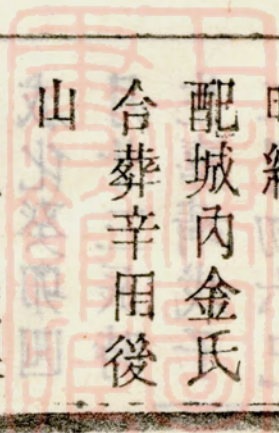 配城內金氏
合葬辛田後
山